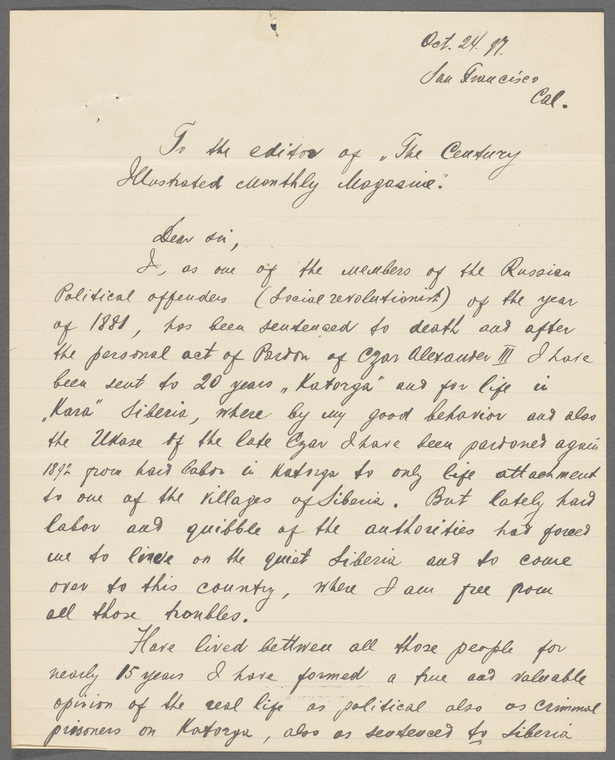 Oct. 24. 97.
San Francisco
Cal.
To the editor of „The Century
Illustrated Monthly Magasine."
Dear sir,
I, as one of the members of the Russian
Political offenders (Social revolutionist) of the year
of 1881, has been sentenced to death and after
the personal act of Pardon of Czar Alexander III I have
been sent to 20 years „Katorga" and for life in
„Kara" Siberia, where by my good behavior and also
the Ukase of the late Czar I have been pardoned again
1892 from hard labor in Katorga to only life attachment
to one of the villages of Siberia. But lately hard
labor and quibble of the authorities had forced
me to on the quiet Siberia and to come
over to this country, where I am free from
all those troubles.
Have lived bettwen all those people for
nearly 15 years I have formed a true and valuable
opinion of the real life as political also as criminal
prisoners on Katorga, also as sentenced to Siberia